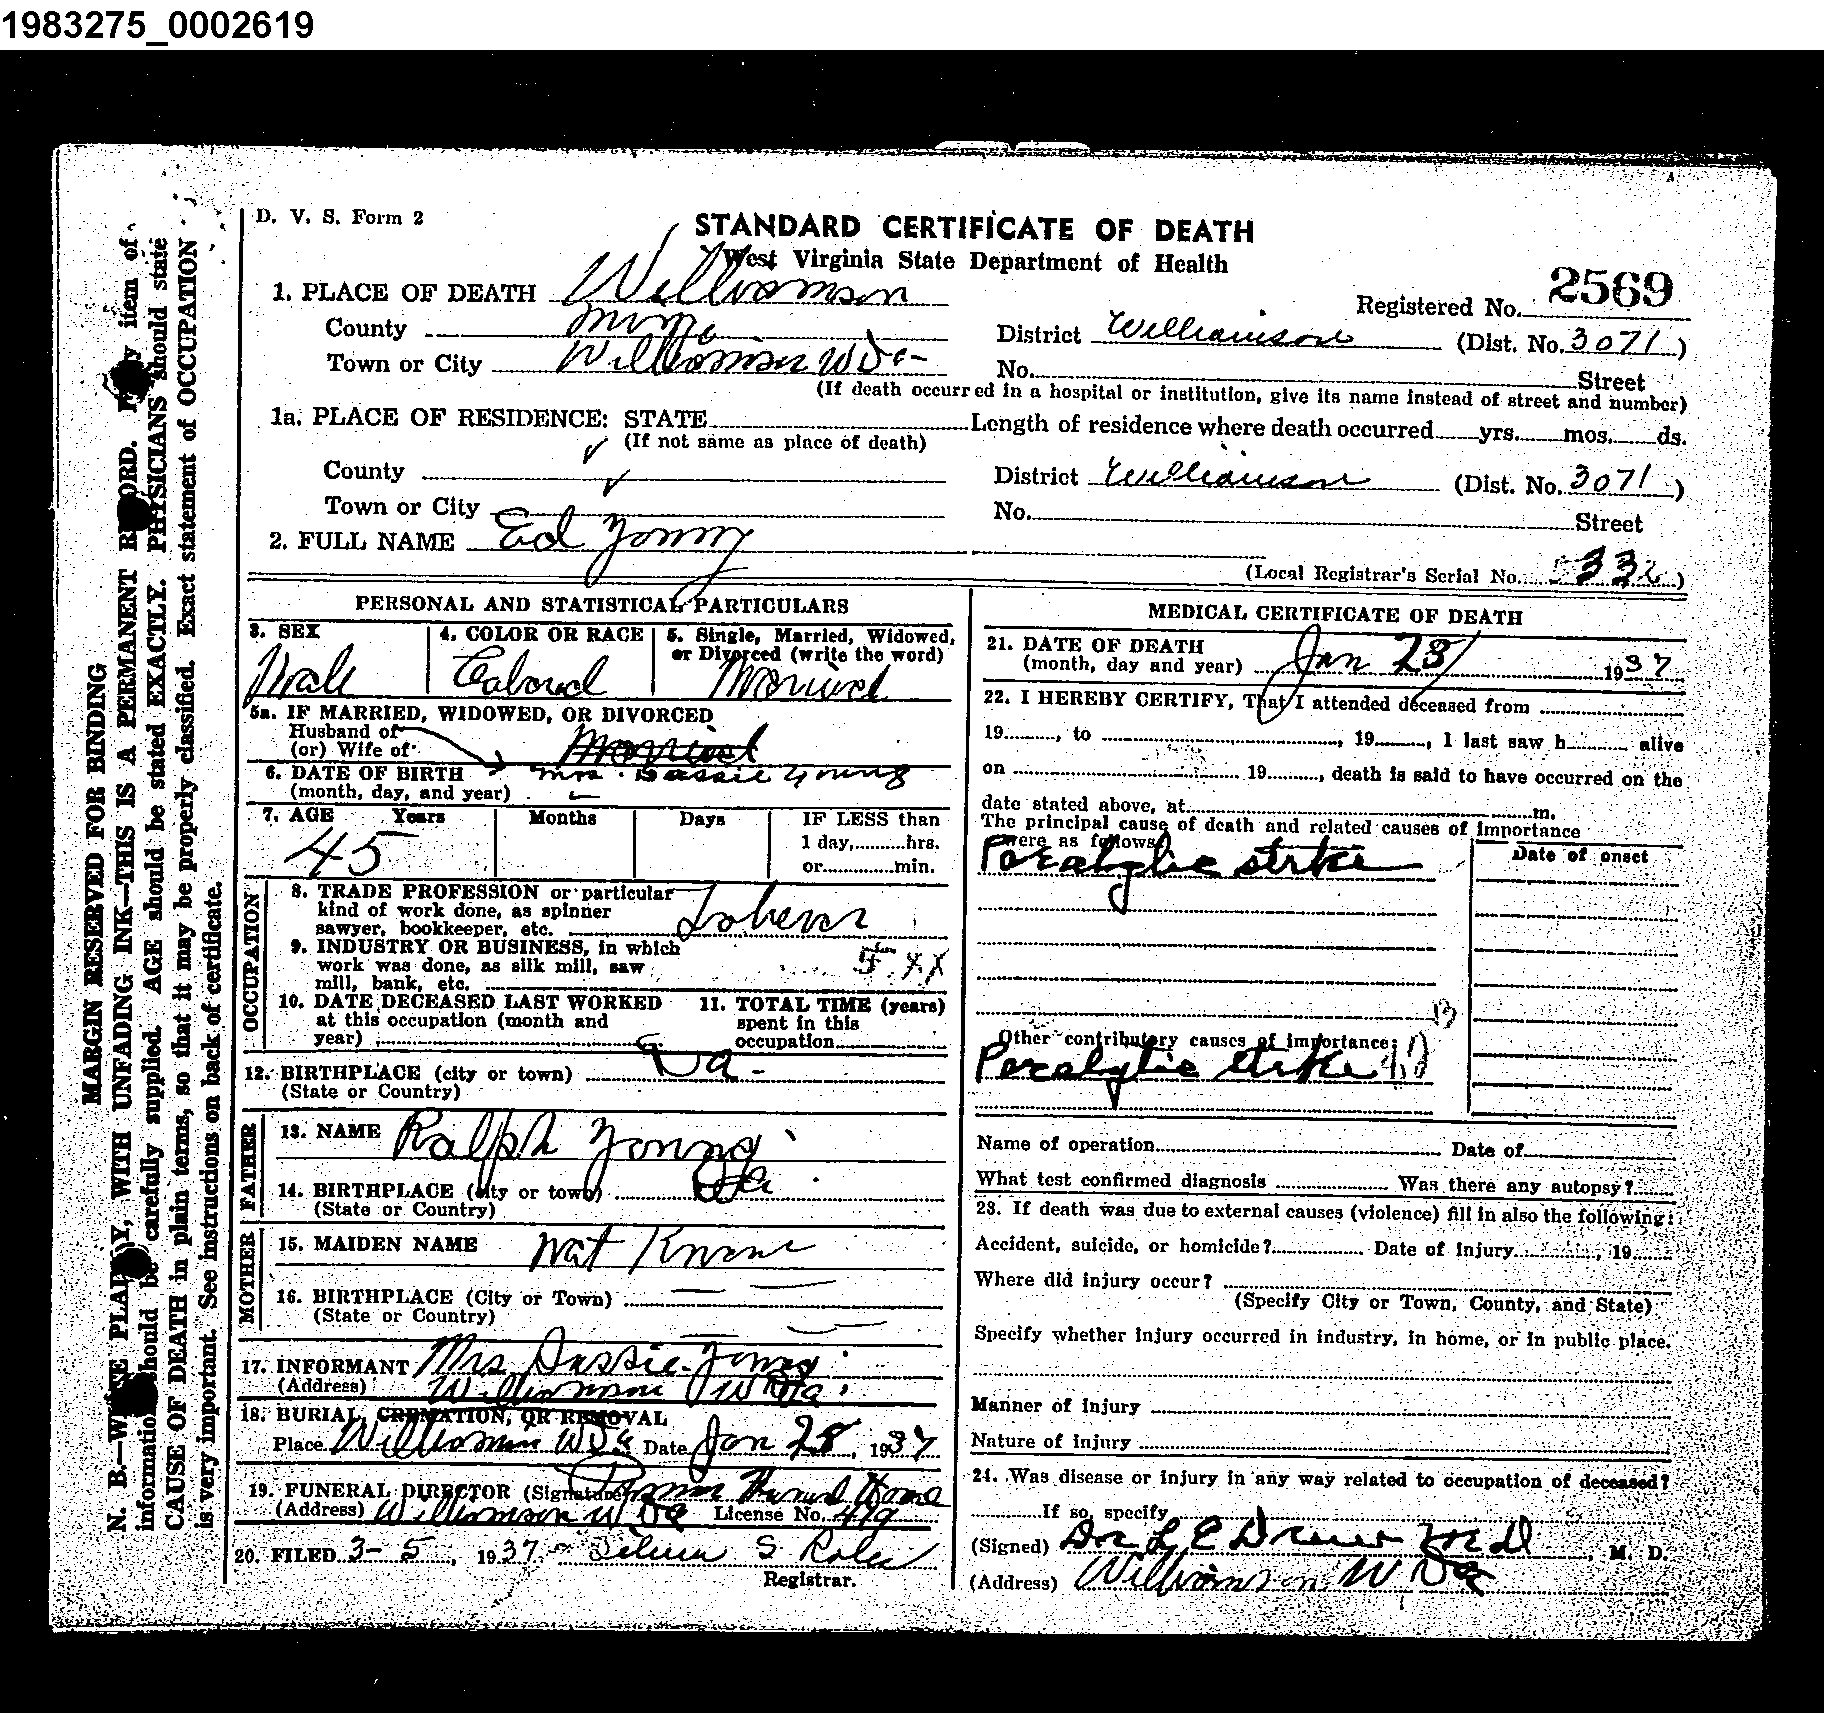 1983275_0002619
D. V. S. Form 2
STANDARD CERTIFICATE OF DEATH
West Virginia State Department of Health
1. PLACE OF DEATH Williamson
Registered No. 2569
County Mingo
District Williamson (Dist. No. 3071)
Town or City Williamson W Va
No. Street
(If death occurred in a hospital or institution, give its name instead of street and number)
1a. PLACE OF RESIDENCE: STATE Length of residence where death occurred yrs. mos. ds.
(If not same as place of death)
County
District Williamson (Dist. No. 3071)
Town or City
No. Street
2. FULL NAME Ed Young
(Local Registrar's Serial No. 332)
PERSONAL AND STATISTICAL PARTICULARS
3. SEX
Male
4. COLOR OR RACE
Colored
5. Single, Married, Widowed,
or Divorced (write the word)
Married
5a. IF MARRIED, WIDOWED, OR DIVORCED
Husband of
(or) Wife of Married
6. DATE OF BIRTH Mrs. Dassie Young
(month, day, and year)
7. AGE Years Months Days IF LESS than
45
1 day, hrs.
or min.
OCCUPATION
8. TRADE PROFESSION or particular
kind of work done, as spinner
sawyer, bookkeeper, etc. Laborer
9. INDUSTRY OR BUSINESS, in which
work was done, as silk mill, saw
mill, bank, etc. 5 XX
10. DATE DECEASED LAST WORKED
at this occupation (month and
year)
11. TOTAL TIME (years)
spent in this
occupation
12. BIRTHPLACE (city or town) Va.
(State or Country)
FATHER
13. NAME Ralph Young
14. BIRTHPLACE (city or town) Va
(State or Country)
MOTHER
15. MAIDEN NAME Not Known
16. BIRTHPLACE (City or Town)
(State or Country)
17. INFORMANT Mrs Dassie Young
(Address) Williamson W Va.
18. BURIAL, CREMATION, OR REMOVAL
Place Williamson W Va Date Jan 28, 1937
19. FUNERAL DIRECTOR (Signature) Funeral Home
(Address) Williamson W Va License No. 419
20. FILED 3-5, 1937 S
Registrar.
MEDICAL CERTIFICATE OF DEATH
21. DATE OF DEATH
(month, day and year) Jan 23/ 1937
22. I HEREBY CERTIFY, That I attended deceased from
19, to , 19, I last saw h alive
on 19, death is said to have occurred on the
date stated above, at m.
The principal cause of death and related causes of importance
were as follows:
Date of onset
Paralytic stroke
Other contributory causes of importance:
Paralytic stroke
Name of operation Date of
What test confirmed diagnosis Was there any autopsy?
23. If death was due to external causes (violence) fill in also the following:
Accident, suicide, or homicide? Date of injury , 19
Where did injury occur?
(Specify City or Town, County, and State)
Specify whether injury occurred in industry, in home, or in public place.
Manner of injury
Nature of injury
24. Was disease or injury in any way related to occupation of deceased?
If so, specify
(Signed) Dr L E Drew M D, M. D.
(Address) Williamson W Va
MARGIN RESERVED FOR BINDING
N. B.—WRITE PLAINLY, WITH UNFADING INK—THIS IS A PERMANENT RECORD. Every item of
information should be carefully supplied. AGE should be stated EXACTLY. PHYSICIANS should state
CAUSE OF DEATH in plain terms, so that it may be properly classified. Exact statement of OCCUPATION
is very important. See instructions on back of certificate.